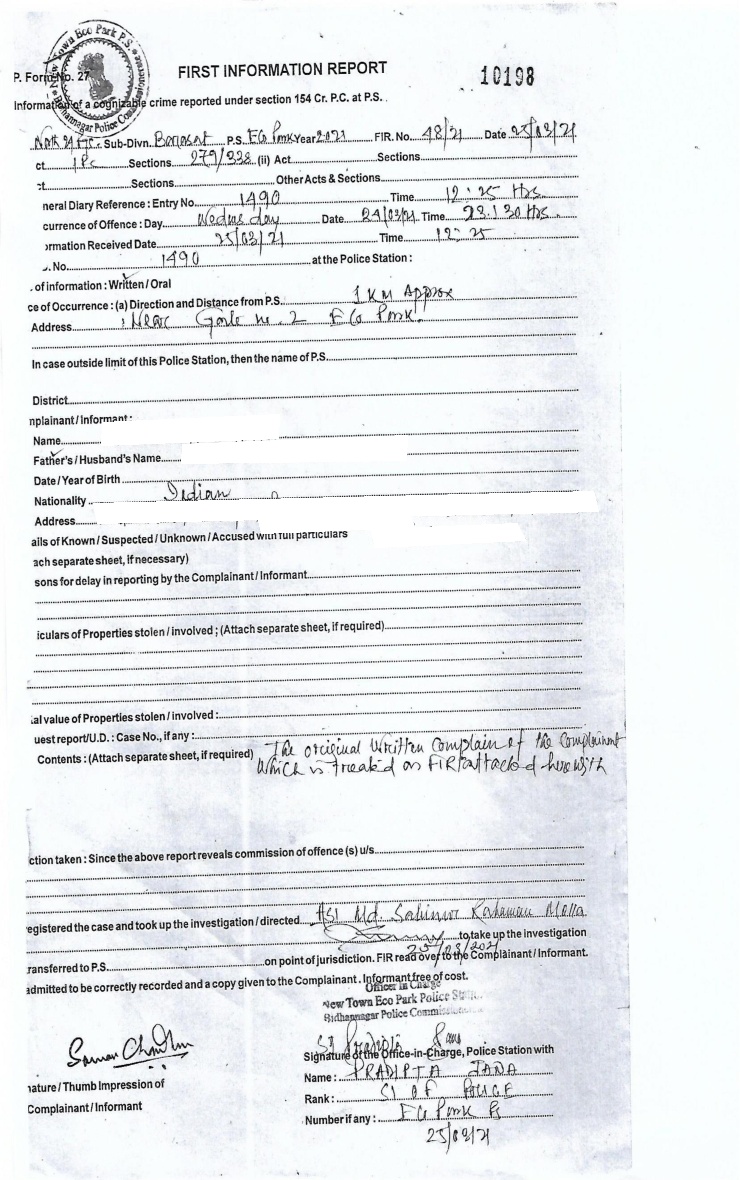 New Town Eco Park P.S.
Bidhannagar Police Commissionerate
P. Form No. 27
FIRST INFORMATION REPORT
10198
Information of a cognizable crime reported under section 154 Cr. P.C. at P.S.
Sub-Divn. Barasat P.S. Eco Park Year 2021 FIR. No. 48/21 Date 25/03/21
ct IPC Sections 279/338 (ii) Act Sections
ct Sections Other Acts & Sections
neral Diary Reference : Entry No. 1490 Time 12:25 Hrs
currence of Offence : Day Wednesday Date 24/03/21 Time 23:30 Hrs.
ormation Received Date 25/03/21 Time 12:25
. No. 1490 at the Police Station :
. of information : Written / Oral
ce of Occurrence : (a) Direction and Distance from P.S. 1 KM Approx
Address : Near Gate no. 2 Eco Park.
In case outside limit of this Police Station, then the name of P.S.
District
nplainant / Informant :
Name
Father's / Husband's Name
Date / Year of Birth
Nationality Indian
Address
ails of Known / Suspected / Unknown / Accused with full particulars
ach separate sheet, if necessary)
sons for delay in reporting by the Complainant / Informant
iculars of Properties stolen / involved ; (Attach separate sheet, if required)
al value of Properties stolen / involved :
uest report/U.D. : Case No., if any :
Contents : (Attach separate sheet, if required) The original Written Complain of the Complainant
Which is treated as FIR attached herewith
ction taken : Since the above report reveals commission of offence (s) u/s
egistered the case and took up the investigation / directed ASI Md. Sahinur Rahaman Molla
to take up the investigation
25/03/2021
ransferred to P.S. on point of jurisdiction. FIR read over to the Complainant / Informant.
admitted to be correctly recorded and a copy given to the Complainant . Informant free of cost.
Officer in Charge
New Town Eco Park Police
Bidhannagar Police
Signature of the Office-in-Charge, Police Station with
nature / Thumb Impression of
Complainant / Informant
Name : PRADIPTA JANA
Rank : SI OF POLICE
Number if any : Eco Park PS
25/03/21